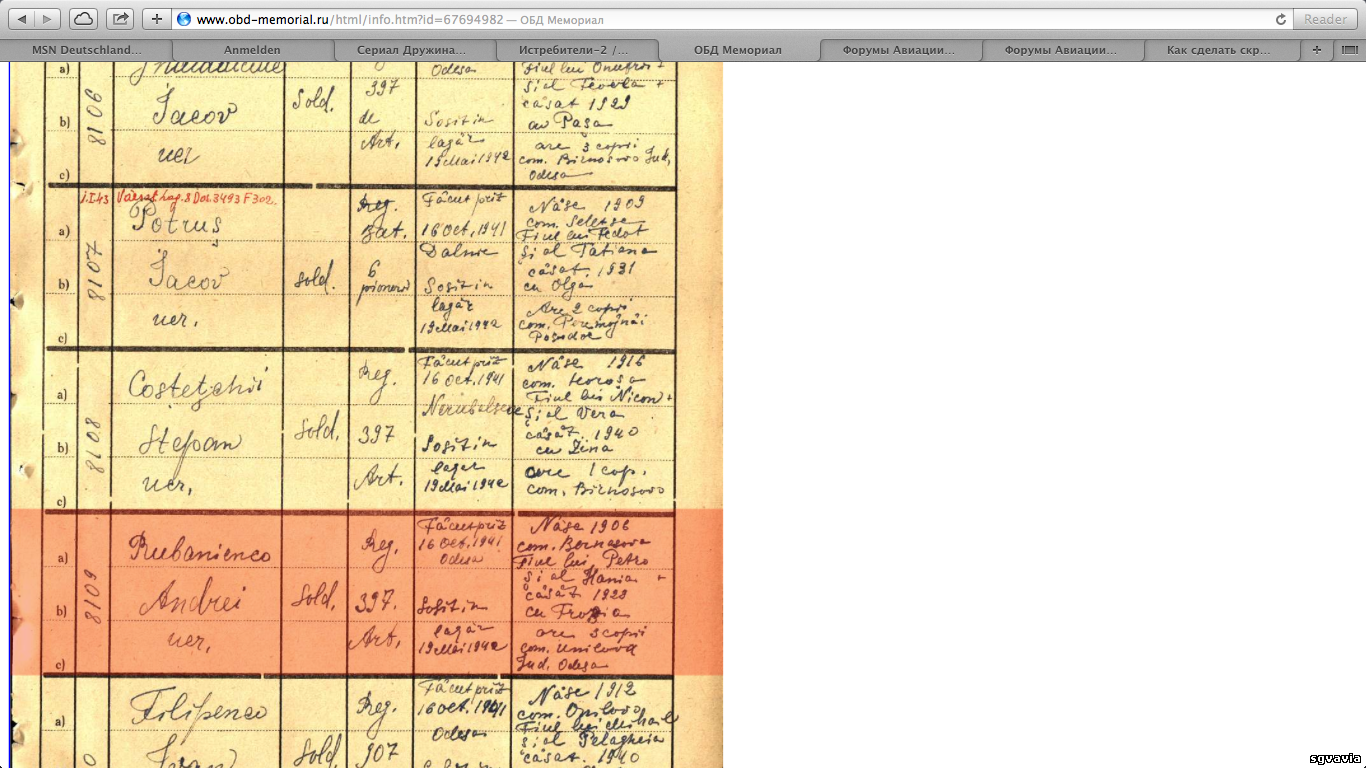 www.obd-memorial.ru/html/info.htm?id=67694982 — ОБД Мемориал
Reader
MSN Deutschland...
Anmelden
Сериал Дружина...
Истребители-2 /...
ОБД Мемориал
Форумы Авиации...
Форумы Авиации...
Как сделать скр...
a)
b)
c)
8106
Iacov
ucr
Sold.
397
de
Art.
Odesa
Sosit in
lagăr
19 Mai 1942
Fiul lui Onufrei +
și al +
căsat 1929
cu Pașa
are 3 copii
com. Birnosovo Jud.
Odesa
1.I.43
Dos. 3493 F 302.
a)
b)
c)
8107
Potruș
Iacov
ucr.
Sold.
Reg.
Bat.
6
pionieri
Făcut priz
16 Oct. 1941
Dalnic
Sosit in
lagăr
19 Mai 1942
Născ 1909
com.
Fiul lui Fedot
și al Tatiana
căsat. 1931
cu Olga
Are 2 copii
com.
a)
b)
c)
8108
Costețchii
Stepan
ucr.
Sold.
Reg.
397
Art.
Făcut priz
16 Oct. 1941
Sosit in
lagăr
19 Mai 1942
Născ 1916
com.
Fiul lui Nicon +
și al Vera
căsăt. 1940
cu Zina
are 1 cop.
com. Birnosovo
a)
b)
c)
8109
Rubanienco
Andrei
ucr.
Sold.
Reg.
397.
Art.
Făcut priz
16 Oct. 1941
Odesa
Sosit in
lagăr
19 Mai 1942
Născ 1906
com.
Fiul lui Petro
și al Hania +
căsăt 1928
cu
are 3 copii
com.
Jud. Odesa
a)
Filipenco
Ivan
Sold.
Reg.
907
Făcut priz
16 Oct. 1941
Odesa
Născ 1912
com.
Fiul lui Mihail
și al Pelagheia
căsat. 1940
sgvavia